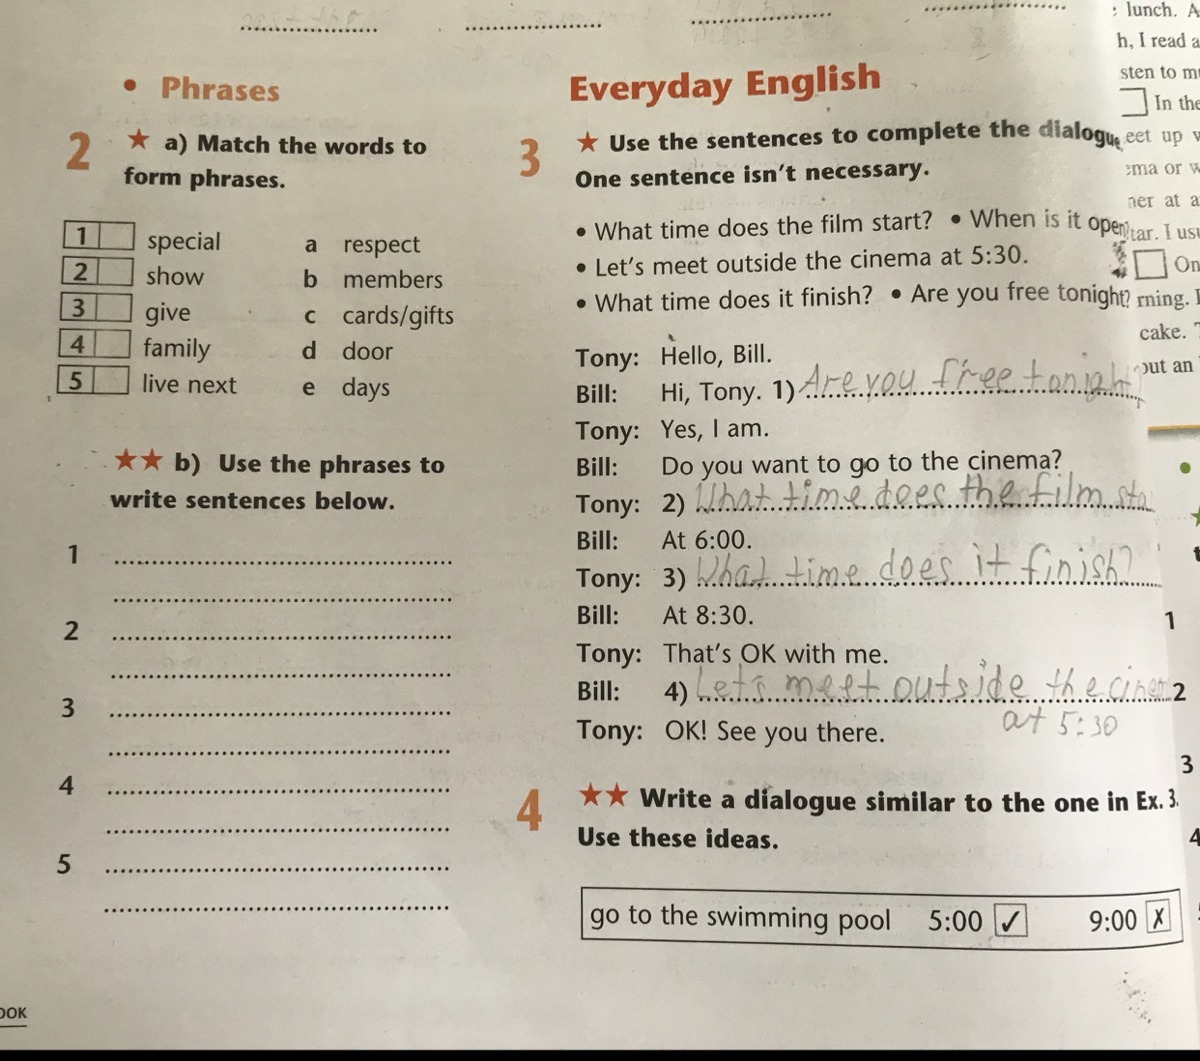 • Phrases
2 ★ a) Match the words to
form phrases.
1 special a respect
2 show b members
3 give c cards/gifts
4 family d door
5 live next e days
★★ b) Use the phrases to
write sentences below.
1
2
3
4
5
OOK
Everyday English
3 ★ Use the sentences to complete the dialogue
One sentence isn't necessary.
• What time does the film start? • When is it open
• Let's meet outside the cinema at 5:30.
• What time does it finish? • Are you free tonight?
Tony: Hello, Bill.
Bill: Hi, Tony. 1) Are you free tonigh
Tony: Yes, I am.
Bill: Do you want to go to the cinema?
Tony: 2) What time does the film sta
Bill: At 6:00.
Tony: 3) What time does it finish?
Bill: At 8:30.
Tony: That's OK with me.
Bill: 4) Let's meet outside the cinem
at 5:30
Tony: OK! See you there.
4 ★★ Write a dialogue similar to the one in Ex. 3.
Use these ideas.
go to the swimming pool 5:00 ✓ 9:00 ✗
; lunch. A
h, I read a
sten to mu
In the
eet up w
ema or w
ner at a
tar. I usu
On
rning. I
cake.
out an
1
2
3
4